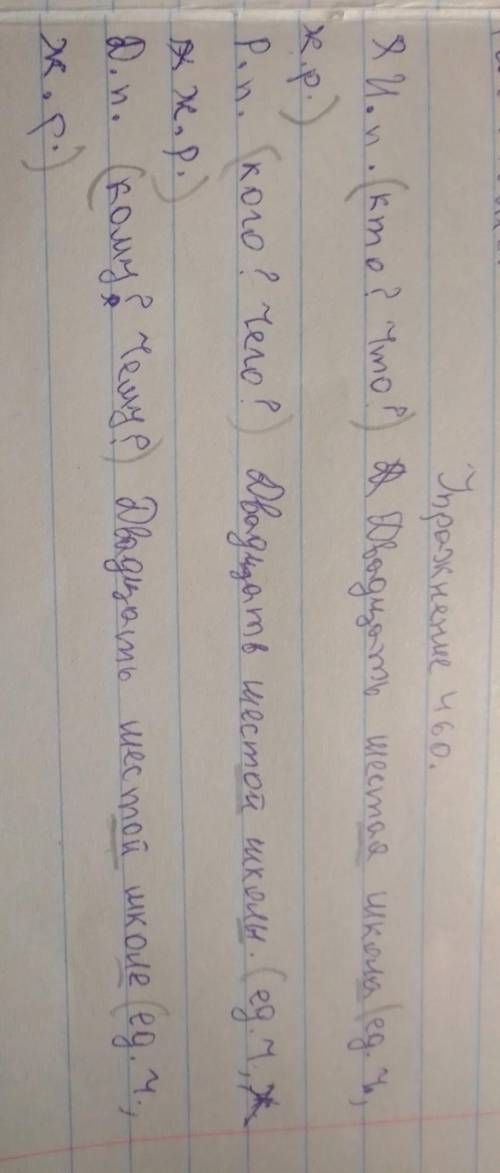 Упражнение 460.
И.п. (кто? что?) Двадцать шестая школа (ед. ч.,
ж.р.)
Р.п. (кого? чего?) Двадцать шестой школы. (ед. ч.,
ж.р.)
Д.п. (кому? чему?) Двадцать шестой школе (ед. ч.,
ж.р.)